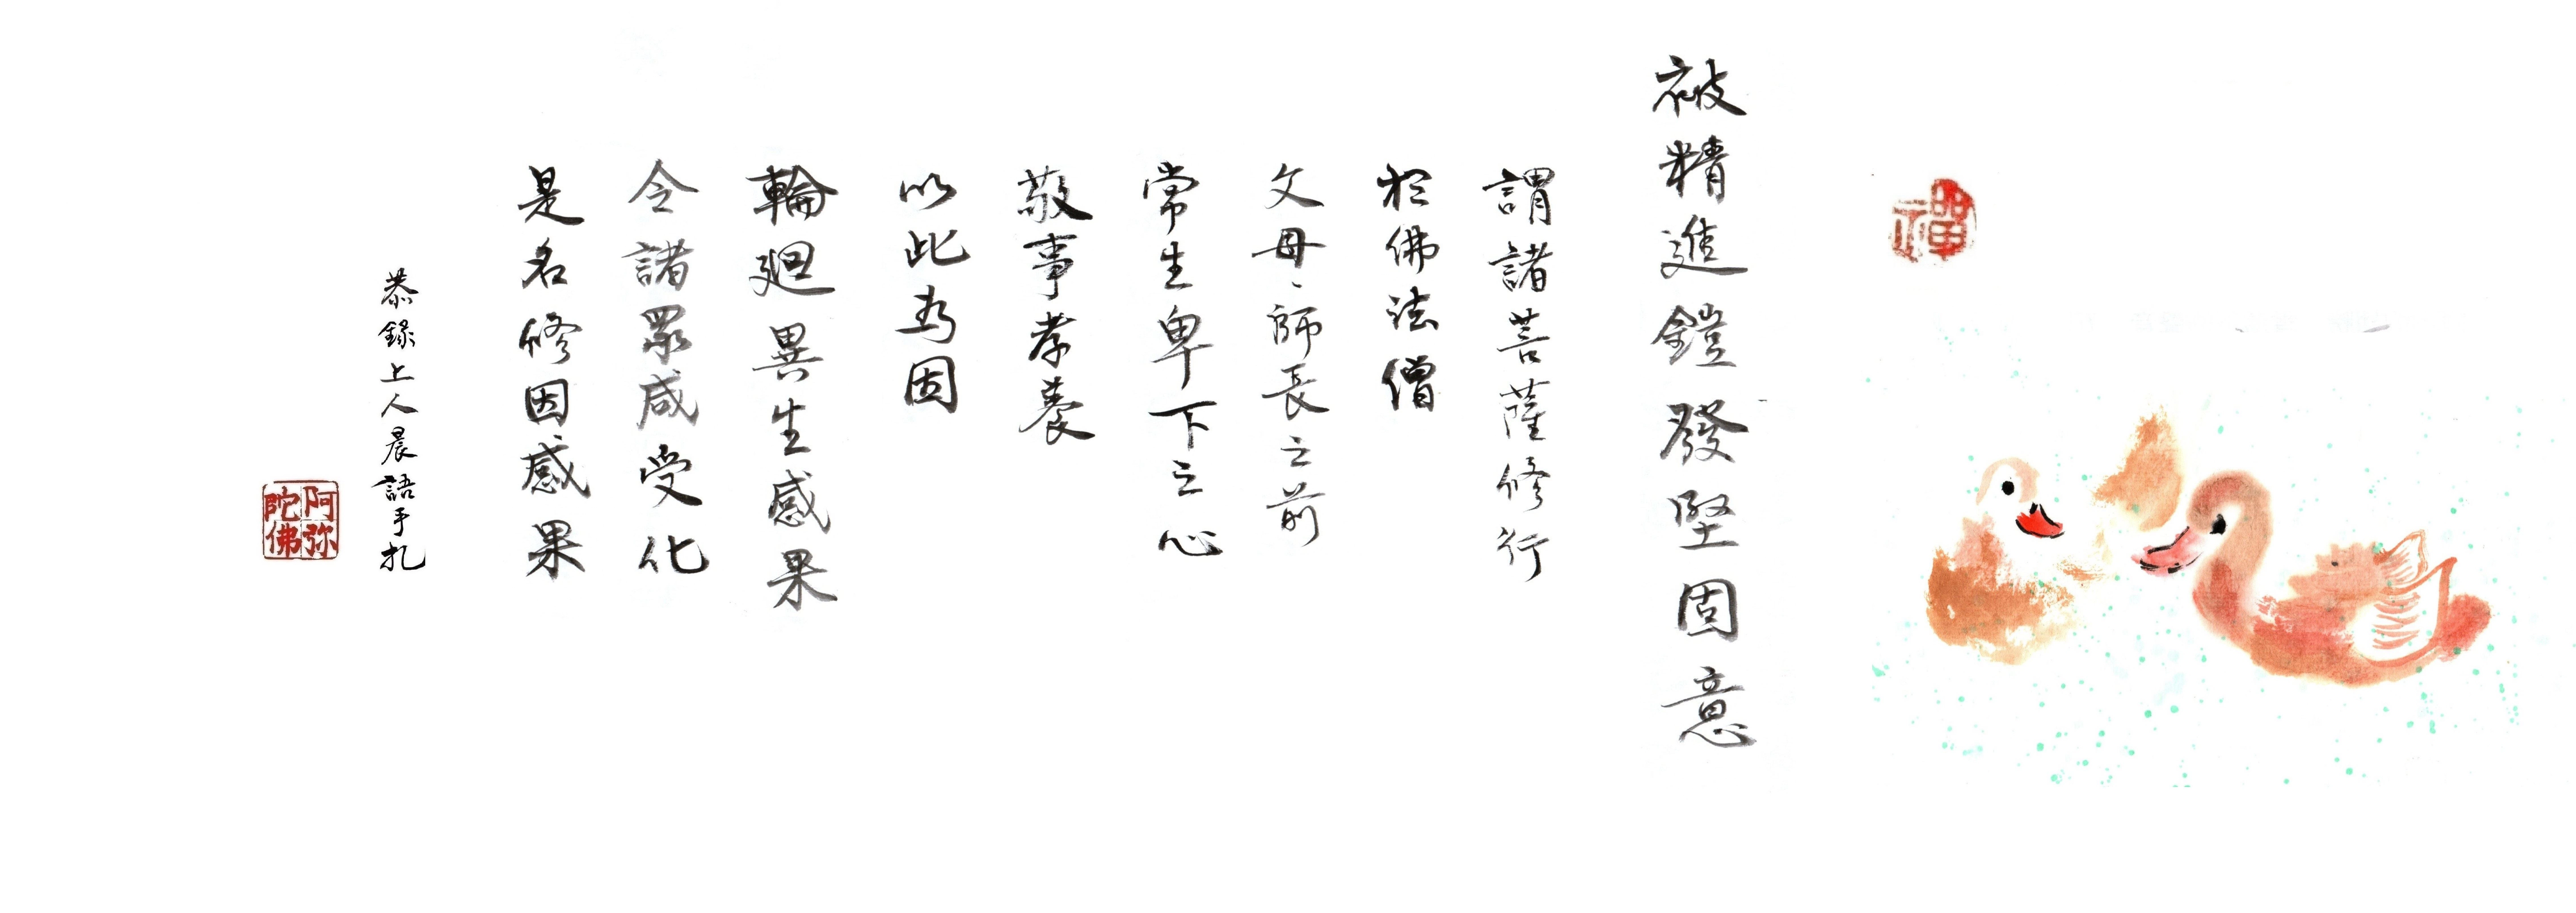 禪
被精進鎧發堅固意
謂諸菩薩修行
於佛法僧
父母、師長之前
常生卑下之心
敬事孝養
以此為固
輪廻異生感果
令諸眾咸受化
是名修因感果
恭錄上人晨語手札
阿弥
陀佛